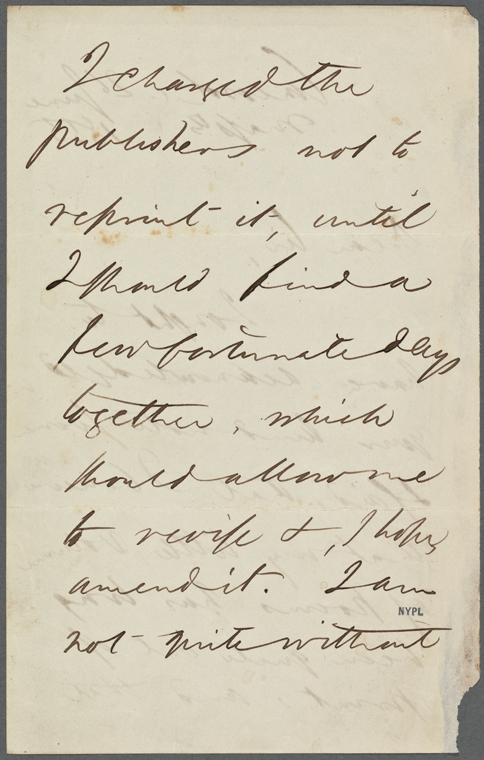 I charged the
publishers not to
reprint it, until
I should find a
few fortunate days
together, which
should allow me
to revise & , I hope,
amend it. I am
NYPL
not quite without